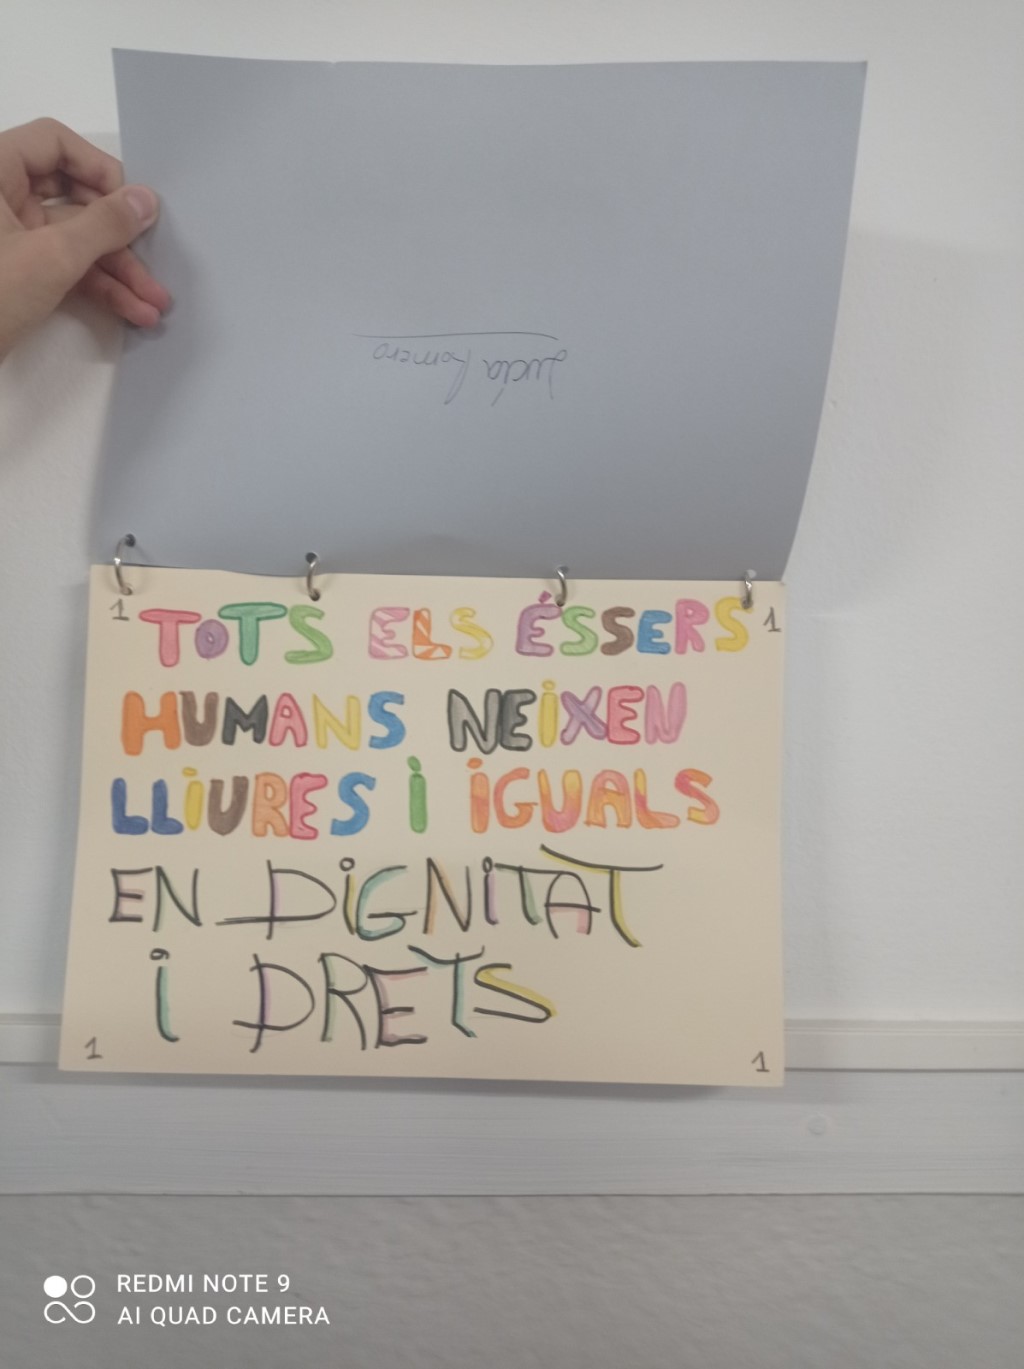 Lucía Romero
1 TOTS ELS ÉSSERS 1
HUMANS NEIXEN
LLIURES I IGUALS
EN DIGNITAT
I DRETS
1 1
REDMI NOTE 9
AI QUAD CAMERA